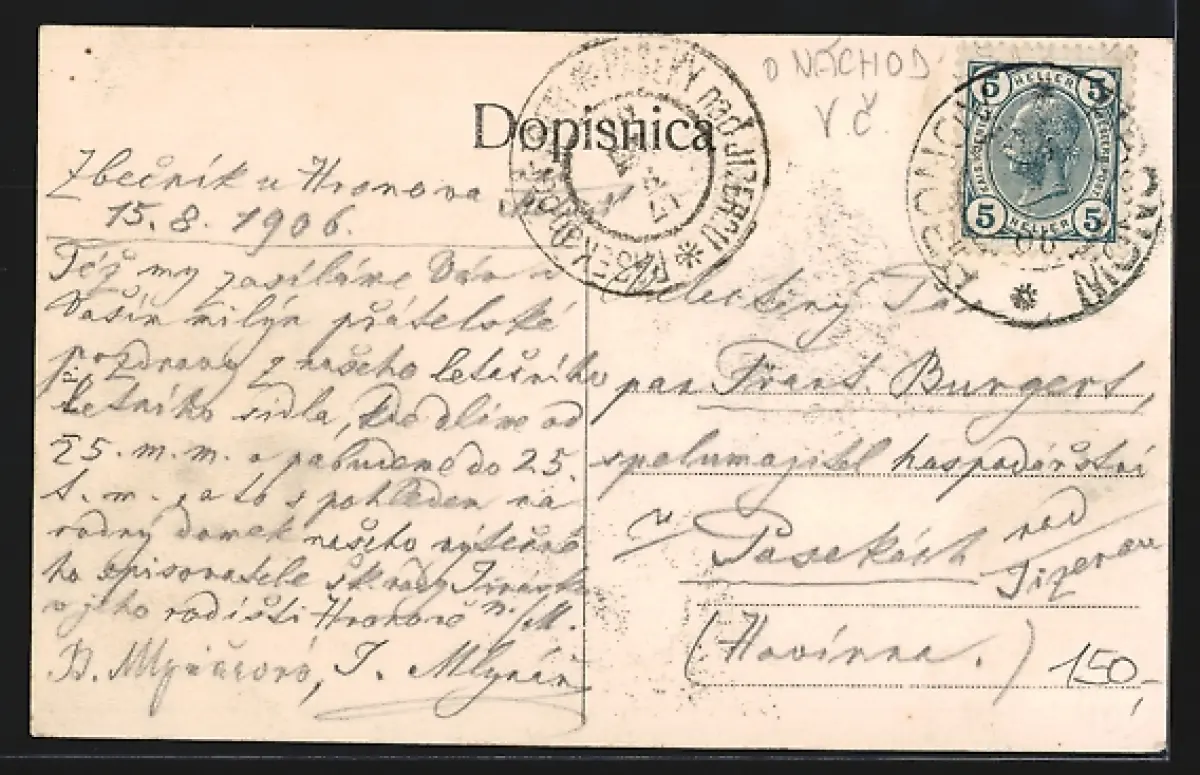 O NÁCHOD
V.Č.
Dopisnica
PASEKY nad JIZEROU
HELLER
5 5
5 5
HELLER
Zbečník u Hronova
15.8.1906.
Též my zasíláme Vám a
Vašim milým přátelské
pozdravy z našeho letošního
letního sídla, kde dlíme od
25. m. m. a pobudeme do 25.
t. m. , a to s pohledem na
rodný domek našeho výtečné
ho spisovatele šk. rady Jiráska
v jeho rodišti Hronově n/M.
B. Mlynářová, J. Mlynář
Velectěný Pán
pan Frant. Burgert,
spolumajitel hospodářství
v Pasekách nad
Jizerou
(Havírna.)
150,-